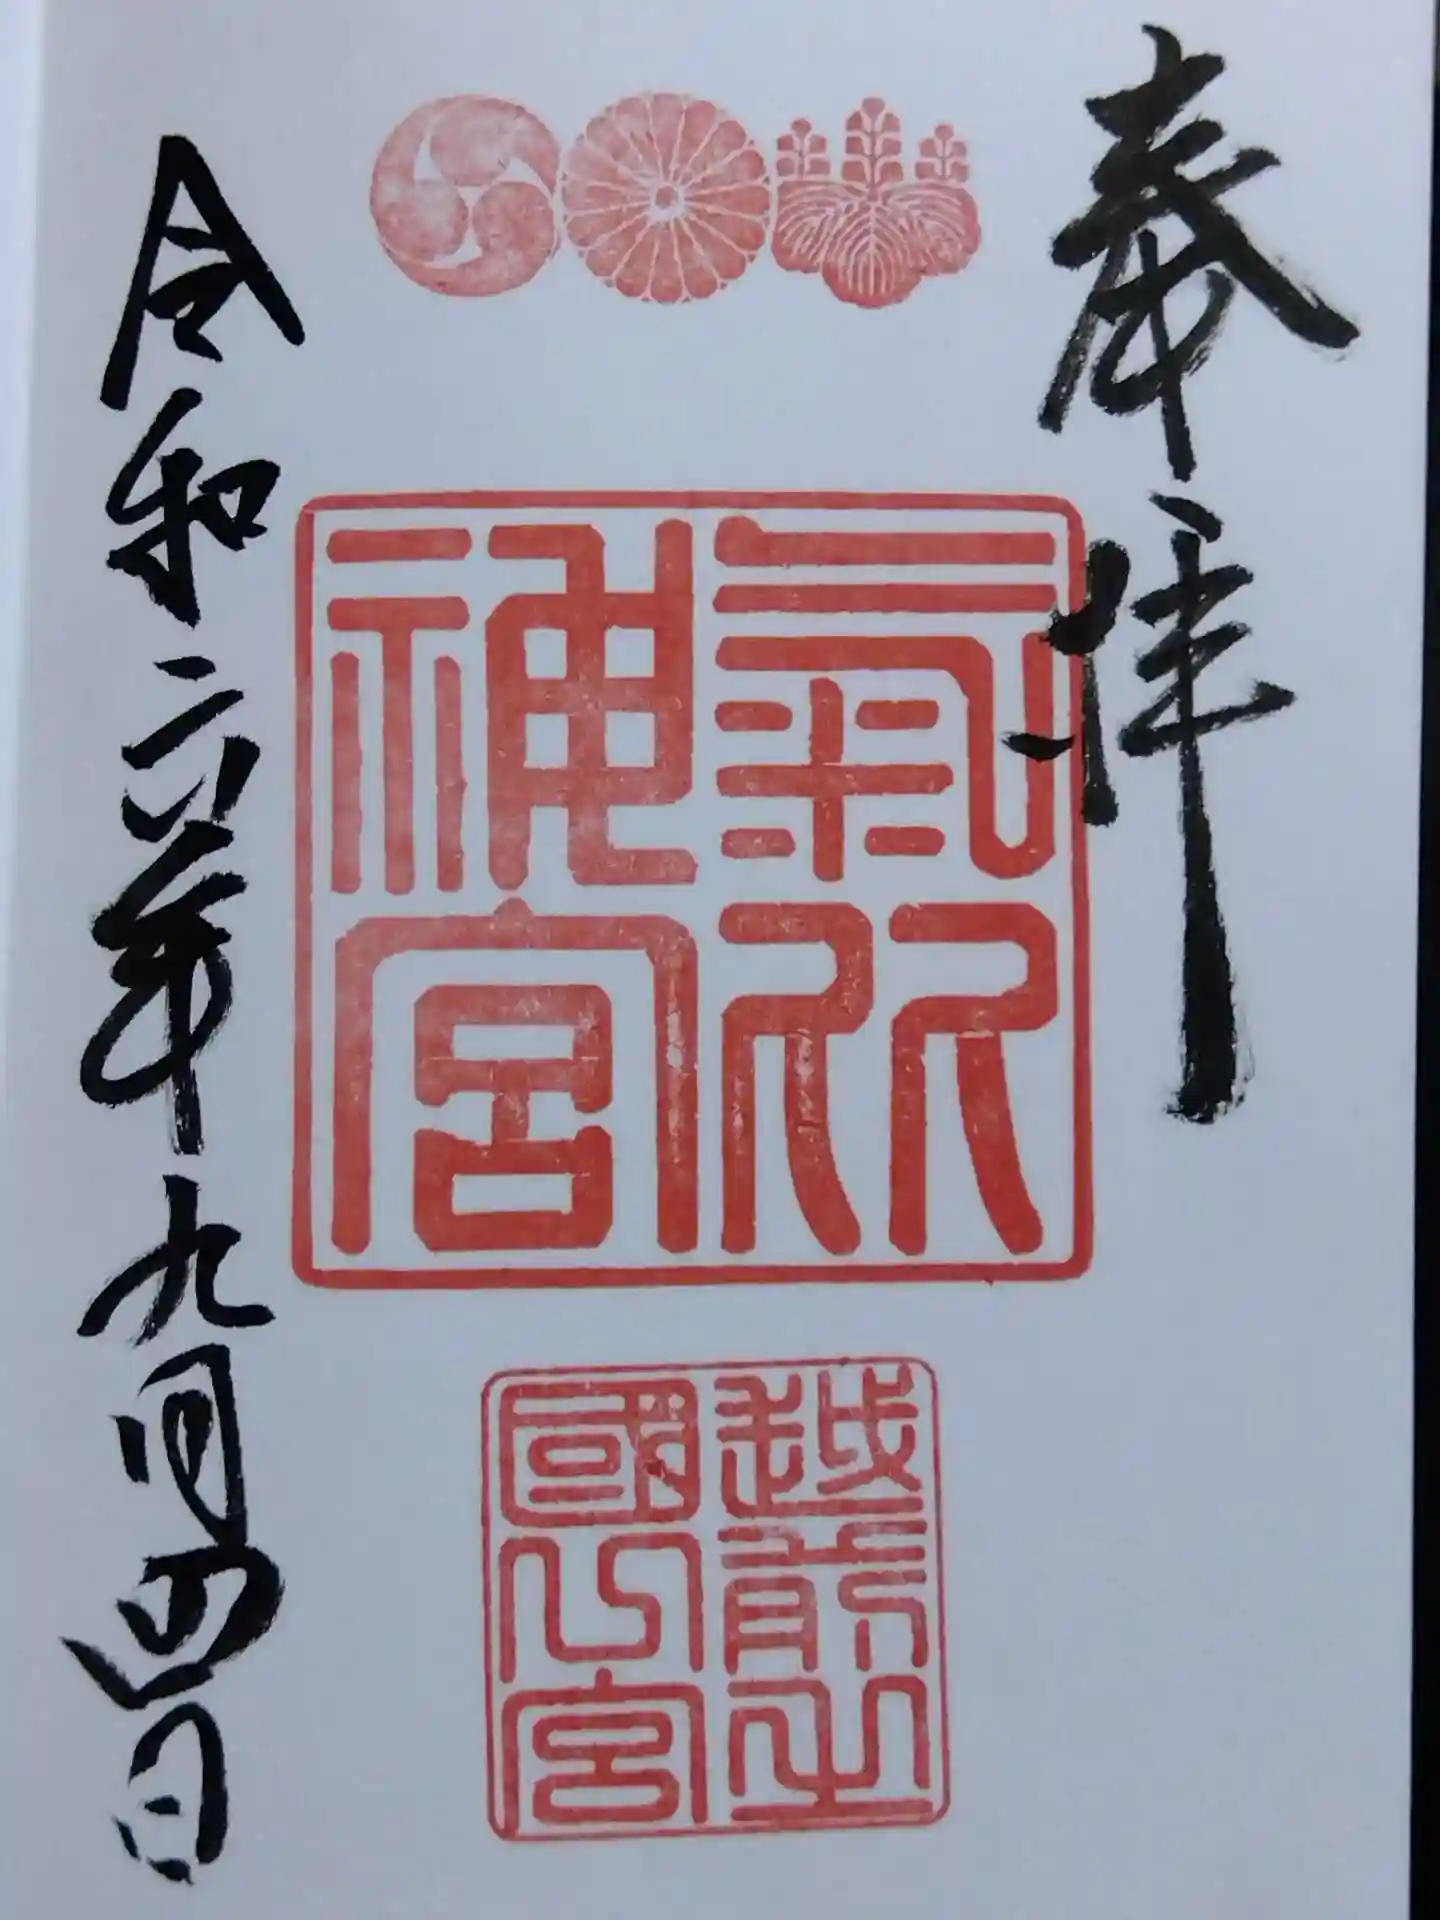 奉拝
氣比
神宮
越前之
國一宮
令和六年九月四日